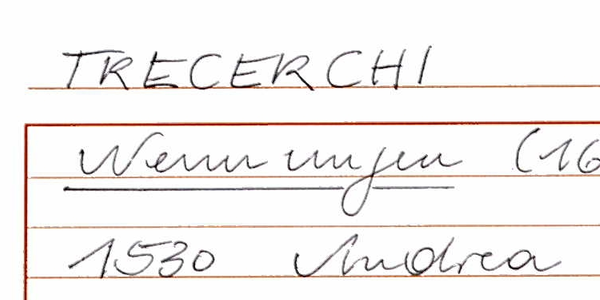 TRECERCHI
Nennungen (16
1530 Andrea